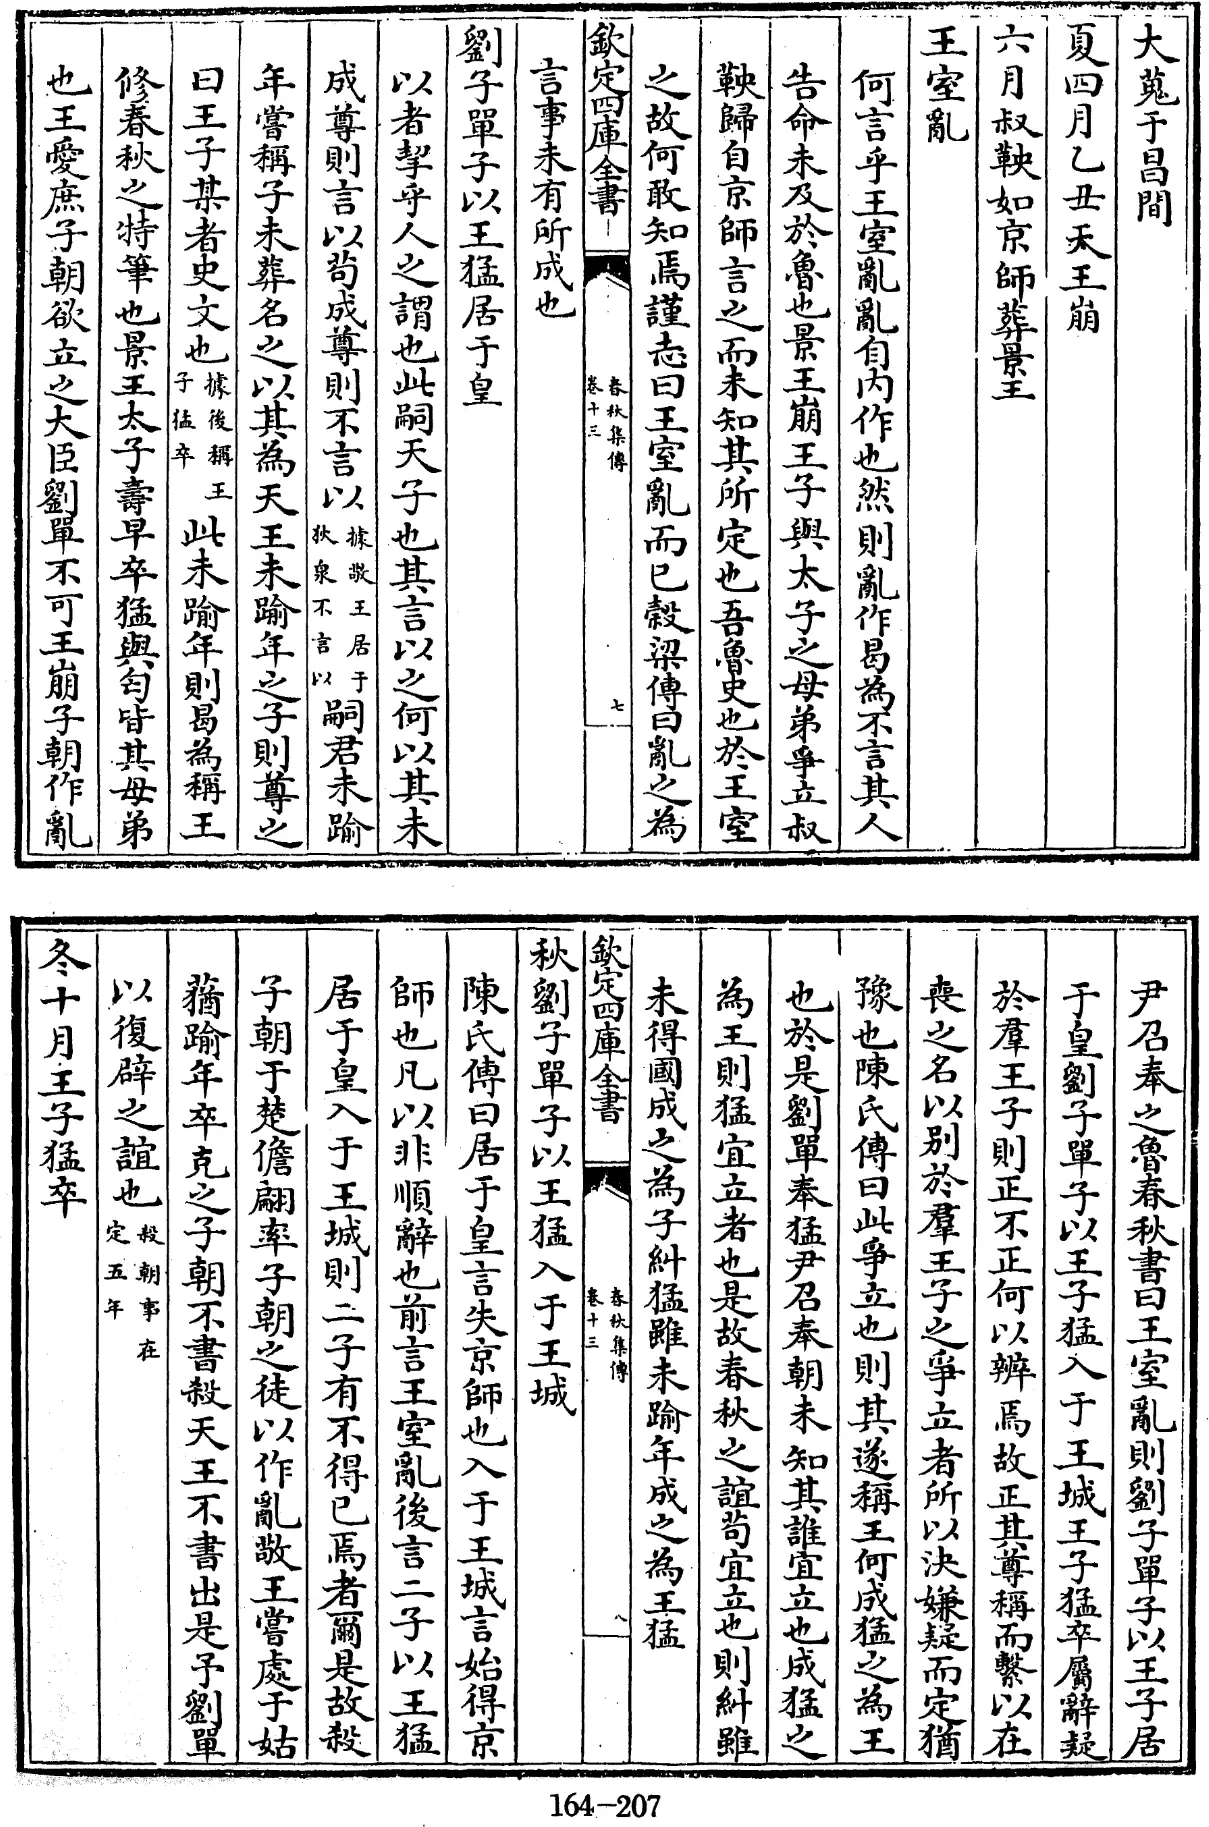 大蒐于昌間
夏四月乙丑天王崩
六月叔鞅如京師葬景王
王室亂
何言乎王室亂亂自内作也然則亂作曷為不言其人
告命未及於魯也景王崩王子與太子之母弟爭立叔
鞅歸自京師言之而未知其所定也吾魯史也於王室
之故何敢知焉謹志曰王室亂而已榖梁傳曰亂之為
欽定四庫全書
春秋集傳
卷十三
七
言事未有所成也
劉子單子以王猛居于皇
以者挈乎人之謂也此嗣天子也其言以之何以其未
成尊則言以苟成尊則不言以據敬王居于狄泉不言以嗣君未踰
年嘗稱子未葬名之以其為天王未踰年之子則尊之
曰王子某者史文也據後稱王子猛卒此未踰年則曷為稱王
修春秋之特筆也景王太子壽早卒猛與匄皆其母弟
也王愛庶子朝欲立之大臣劉單不可王崩子朝作亂
尹召奉之魯春秋書曰王室亂則劉子單子以王子居
于皇劉子單子以王子猛入于王城王子猛卒屬辭疑
於羣王子則正不正何以辨焉故正其尊稱而繫以在
喪之名以别於羣王子之爭立者所以決嫌疑而定猶
豫也陳氏傳曰此爭立也則其遂稱王何成猛之為王
也於是劉單奉猛尹召奉朝未知其誰宜立也成猛之
為王則猛宜立者也是故春秋之誼苟宜立也則糾雖
未得國成之為子糾猛雖未踰年成之為王猛
欽定四庫全書
春秋集傳
卷十三
八
秋劉子單子以王猛入于王城
陳氏傳曰居于皇言失京師也入于王城言始得京
師也凡以非順辭也前言王室亂後言二子以王猛
居于皇入于王城則二子有不得已焉者爾是故殺
子朝于楚儋翩率子朝之徒以作亂敬王嘗處于姑
蕕踰年卒克之子朝不書殺天王不書出是予劉單
以復辟之誼也殺朝事在定五年
冬十月王子猛卒
164-207